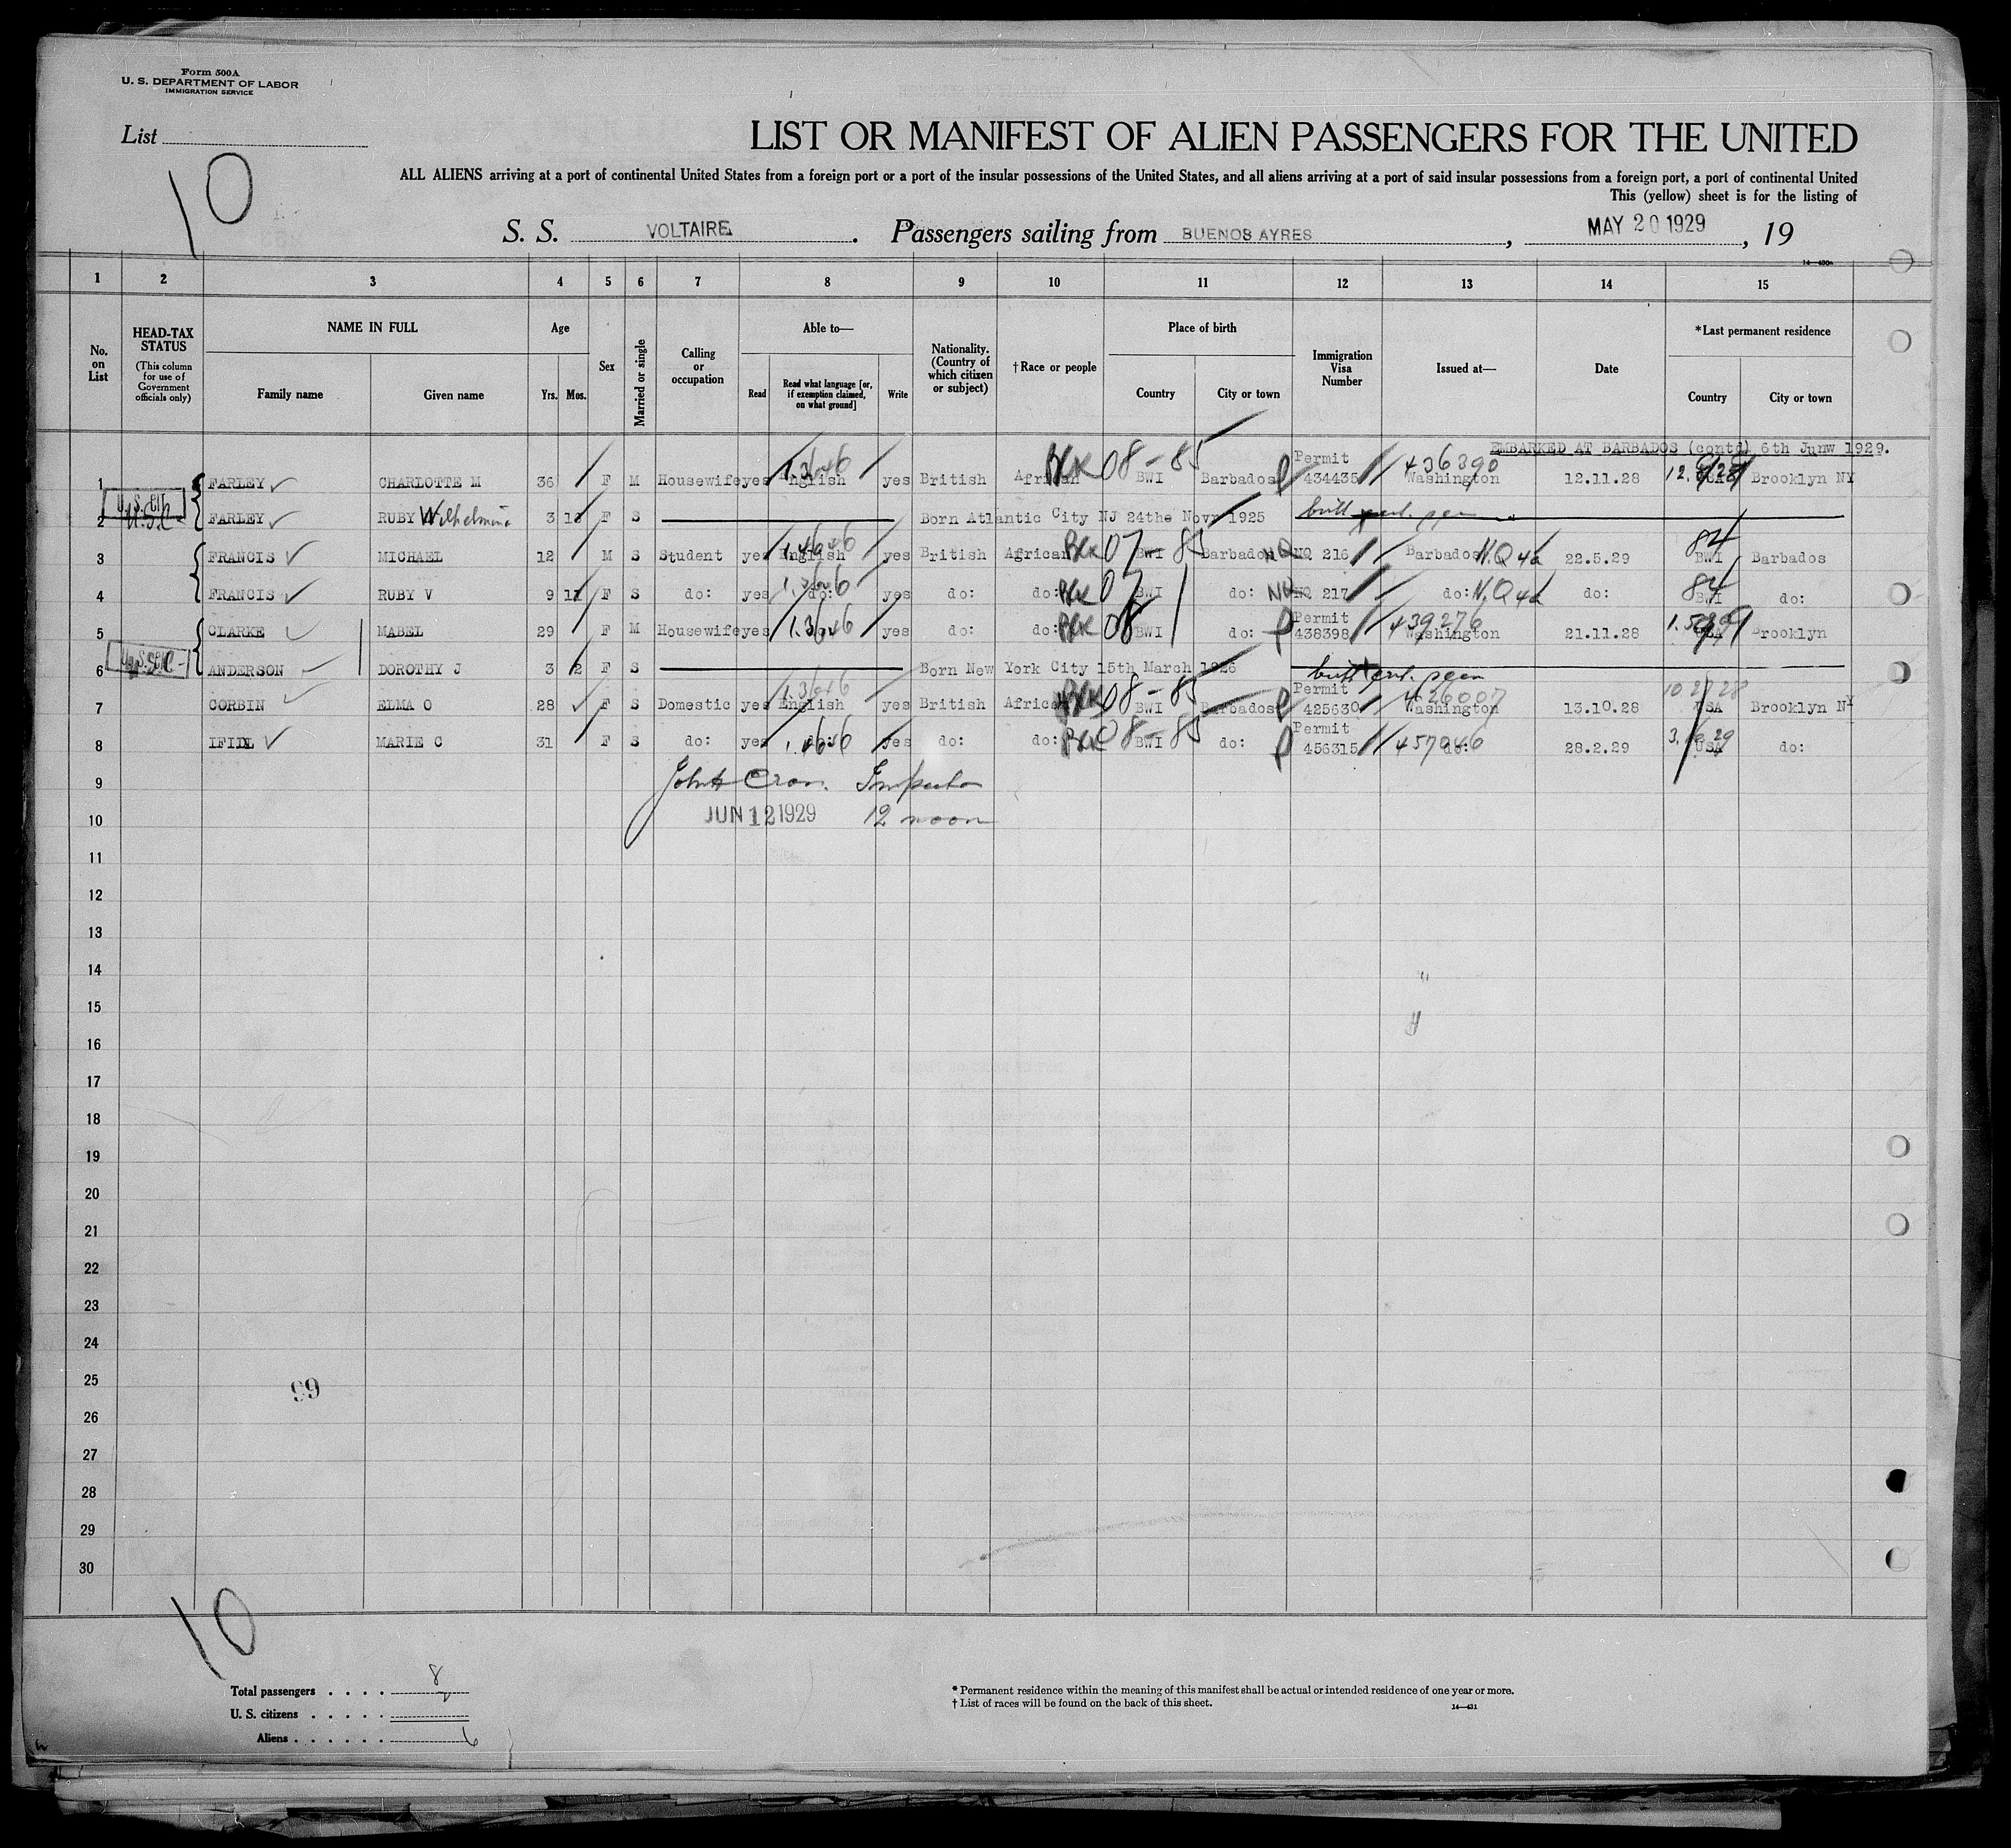 Form 500A
U. S. DEPARTMENT OF LABOR
IMMIGRATION SERVICE
List
10
LIST OR MANIFEST OF ALIEN PASSENGERS FOR THE UNITED
ALL ALIENS arriving at a port of continental United States from a foreign port or a port of the insular possessions of the United States, and all aliens arriving at a port of said insular possessions from a foreign port, a port of continental United
This (yellow) sheet is for the listing of
S. S. VOLTAIRE. Passengers sailing from BUENOS AYRES, MAY 20 1929, 19
14—430a
1 2 3 4 5 6 7 8 9 10 11 12 13 14 15
No. on List
HEAD-TAX STATUS
(This column for use of Government officials only)
NAME IN FULL
Family name Given name
Age
Yrs. Mos.
Sex
Married or single
Calling or occupation
Able to—
Read Read what language [or, if exemption claimed, on what ground] Write
Nationality. (Country of which citizen or subject)
†Race or people
Place of birth
Country City or town
Immigration Visa Number
Issued at—
Date
*Last permanent residence
Country City or town
EMBARKED AT BARBADOS (contd) 6th Junw 1929.
1 FARLEY CHARLOTTE M 36 F M Housewife yes English 1.3646 yes British African Blk 08-85 BWI Barbados P Permit 434435 Washington 436390 12.11.28 USA Brooklyn NY
2 U.S. CIT U.S.C FARLEY RUBY Wilhelmina 3 F S Born Atlantic City NJ 24the Novr 1925
3 FRANCIS MICHAEL 12 M S Student yes English yes British African Blk 07-85 BWI Barbados NQ NQ 216 Barbados N.Q 4a 22.5.29 84 BWI Barbados
4 FRANCIS RUBY V 9 11 F S do: yes do: yes do: do: Blk 07 BWI do: NQ NQ 217 do: N.Q 4a do: 84 BWI do:
5 CLARKE MABEL 29 F M Housewife yes 1.3646 yes do: do: Blk 08 BWI do: P Permit 438398 Washington 439276 21.11.28 USA Brooklyn
6 U.S. CIT ANDERSON DOROTHY J 3 2 F S Born New York City 15th March 1926
7 CORBIN ELMA O 28 F S Domestic yes English 1.3646 yes British African Blk 08-85 BWI Barbados P Permit 425630 Washington 426007 13.10.28 10 27 28 USA Brooklyn NY
8 IFILL MARIE C 31 F S do: yes do: 1.4646 yes do: do: Blk 08-85 BWI do: P Permit 456315 do: 457046 28.2.29 USA do:
9 Inspector
10 JUN 12 1929 12 noon
11
12
13
14
15
16
17
18
19
20
21
22
23
24
25 99
26
27
28
29
30
10
Total passengers . . . . 8
U. S. citizens . . . . .
Aliens . . . . . . 6
* Permanent residence within the meaning of this manifest shall be actual or intended residence of one year or more.
† List of races will be found on the back of this sheet.
14—431